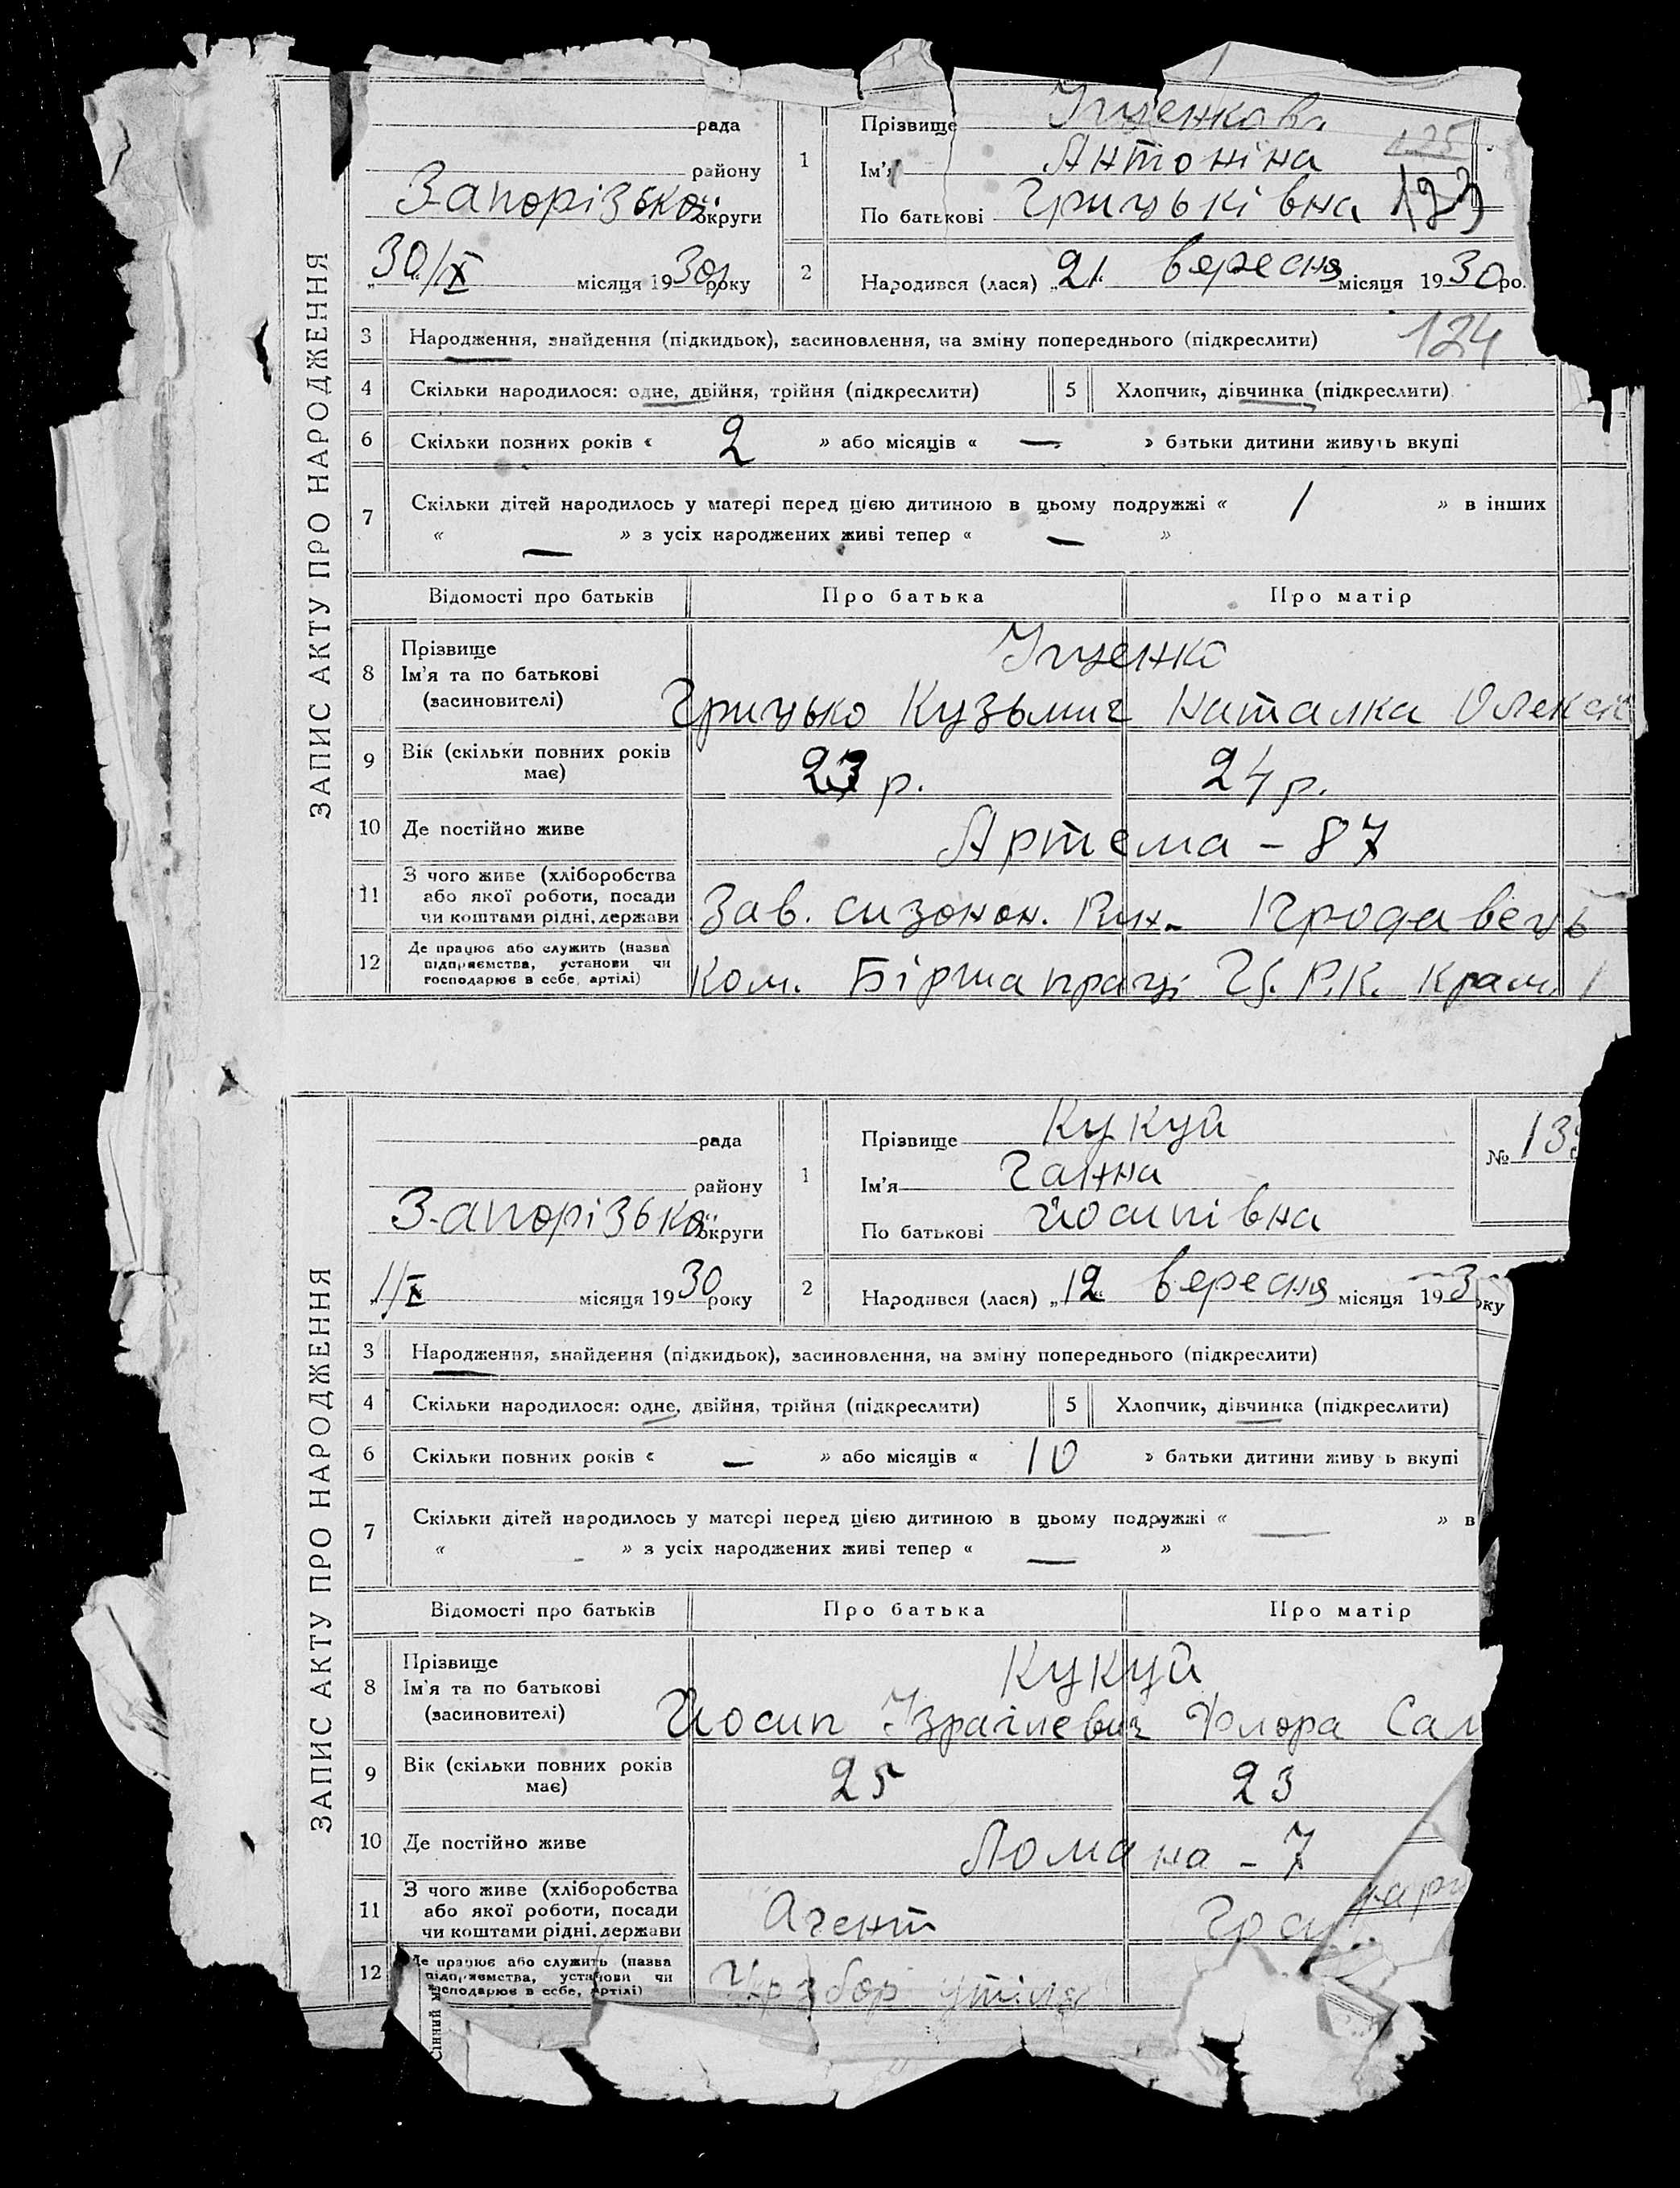 ЗАПИС АКТУ ПРО НАРОДЖЕННЯ
рада
району
Запорізької округи
30/X місяця 1930 р року
1
Прізвище Іщенкова
Ім'я Антоніна
По батькові Грицьківна
125
123
2
Народився (лася) „21" вересня місяця 1930 ро
3 Народження, знайдення (підкидьок), засиновлення, на зміну попереднього (підкреслити)
124
4 Скільки народилося: одне, двійня, трійня (підкреслити) 5 Хлопчик, дівчинка (підкреслити)
6 Скільки повних років « 2 » або місяців « — » батьки дитини живуть вкупі
7 Скільки дітей народилось у матері перед цією дитиною в цьому подружжі « 1 » в інших
« — » з усіх народжених живі тепер « — »
Відомості про батьків Про батька Про матір
8 Прізвище
Ім'я та по батькові
(засиновителі)
Іщенко
Грицько Кузьмич Наталка Олекс
9 Вік (скільки повних років
має)
23 р. 24 р.
10 Де постійно живе Артема – 87
11 З чого живе (хліборобства
або якої роботи, посади
чи коштами рідні, держави
Зав. сизонон. Рин. Продавець
12 Де працює або служить (назва
підприємства, установи чи
господарює в себе, артілі)
Ком. Біржа праці Ц.Р.К. Крам.
ЗАПИС АКТУ ПРО НАРОДЖЕННЯ
рада
району
Запорізької округи
1/X місяця 1930 року
1
Прізвище Кукуй
Ім'я Ганна
По батькові Йосипівна
№ 13
2
Народився (лася) „12" вересня місяця 193 оку
3 Народження, знайдення (підкидьок), засиновлення, на зміну попереднього (підкреслити)
4 Скільки народилося: одне, двійня, трійня (підкреслити) 5 Хлопчик, дівчинка (підкреслити)
6 Скільки повних років « — » або місяців « 10 » батьки дитини живу ь вкупі
7 Скільки дітей народилось у матері перед цією дитиною в цьому подружжі « — » в
« — » з усіх народжених живі тепер « — »
Відомості про батьків Про батька Про матір
8 Прізвище
Ім'я та по батькові
(засиновителі)
Кукуй
Йосип Ізраїлевич Флора Сал
9 Вік (скільки повних років
має)
25 23
10 Де постійно живе Ломана – 7
11 З чого живе (хліборобства
або якої роботи, посади
чи коштами рідні, держави
Агент
12 Де працює або служить (назва
підприємства, установи чи
господарює в себе, артілі)
Сінний